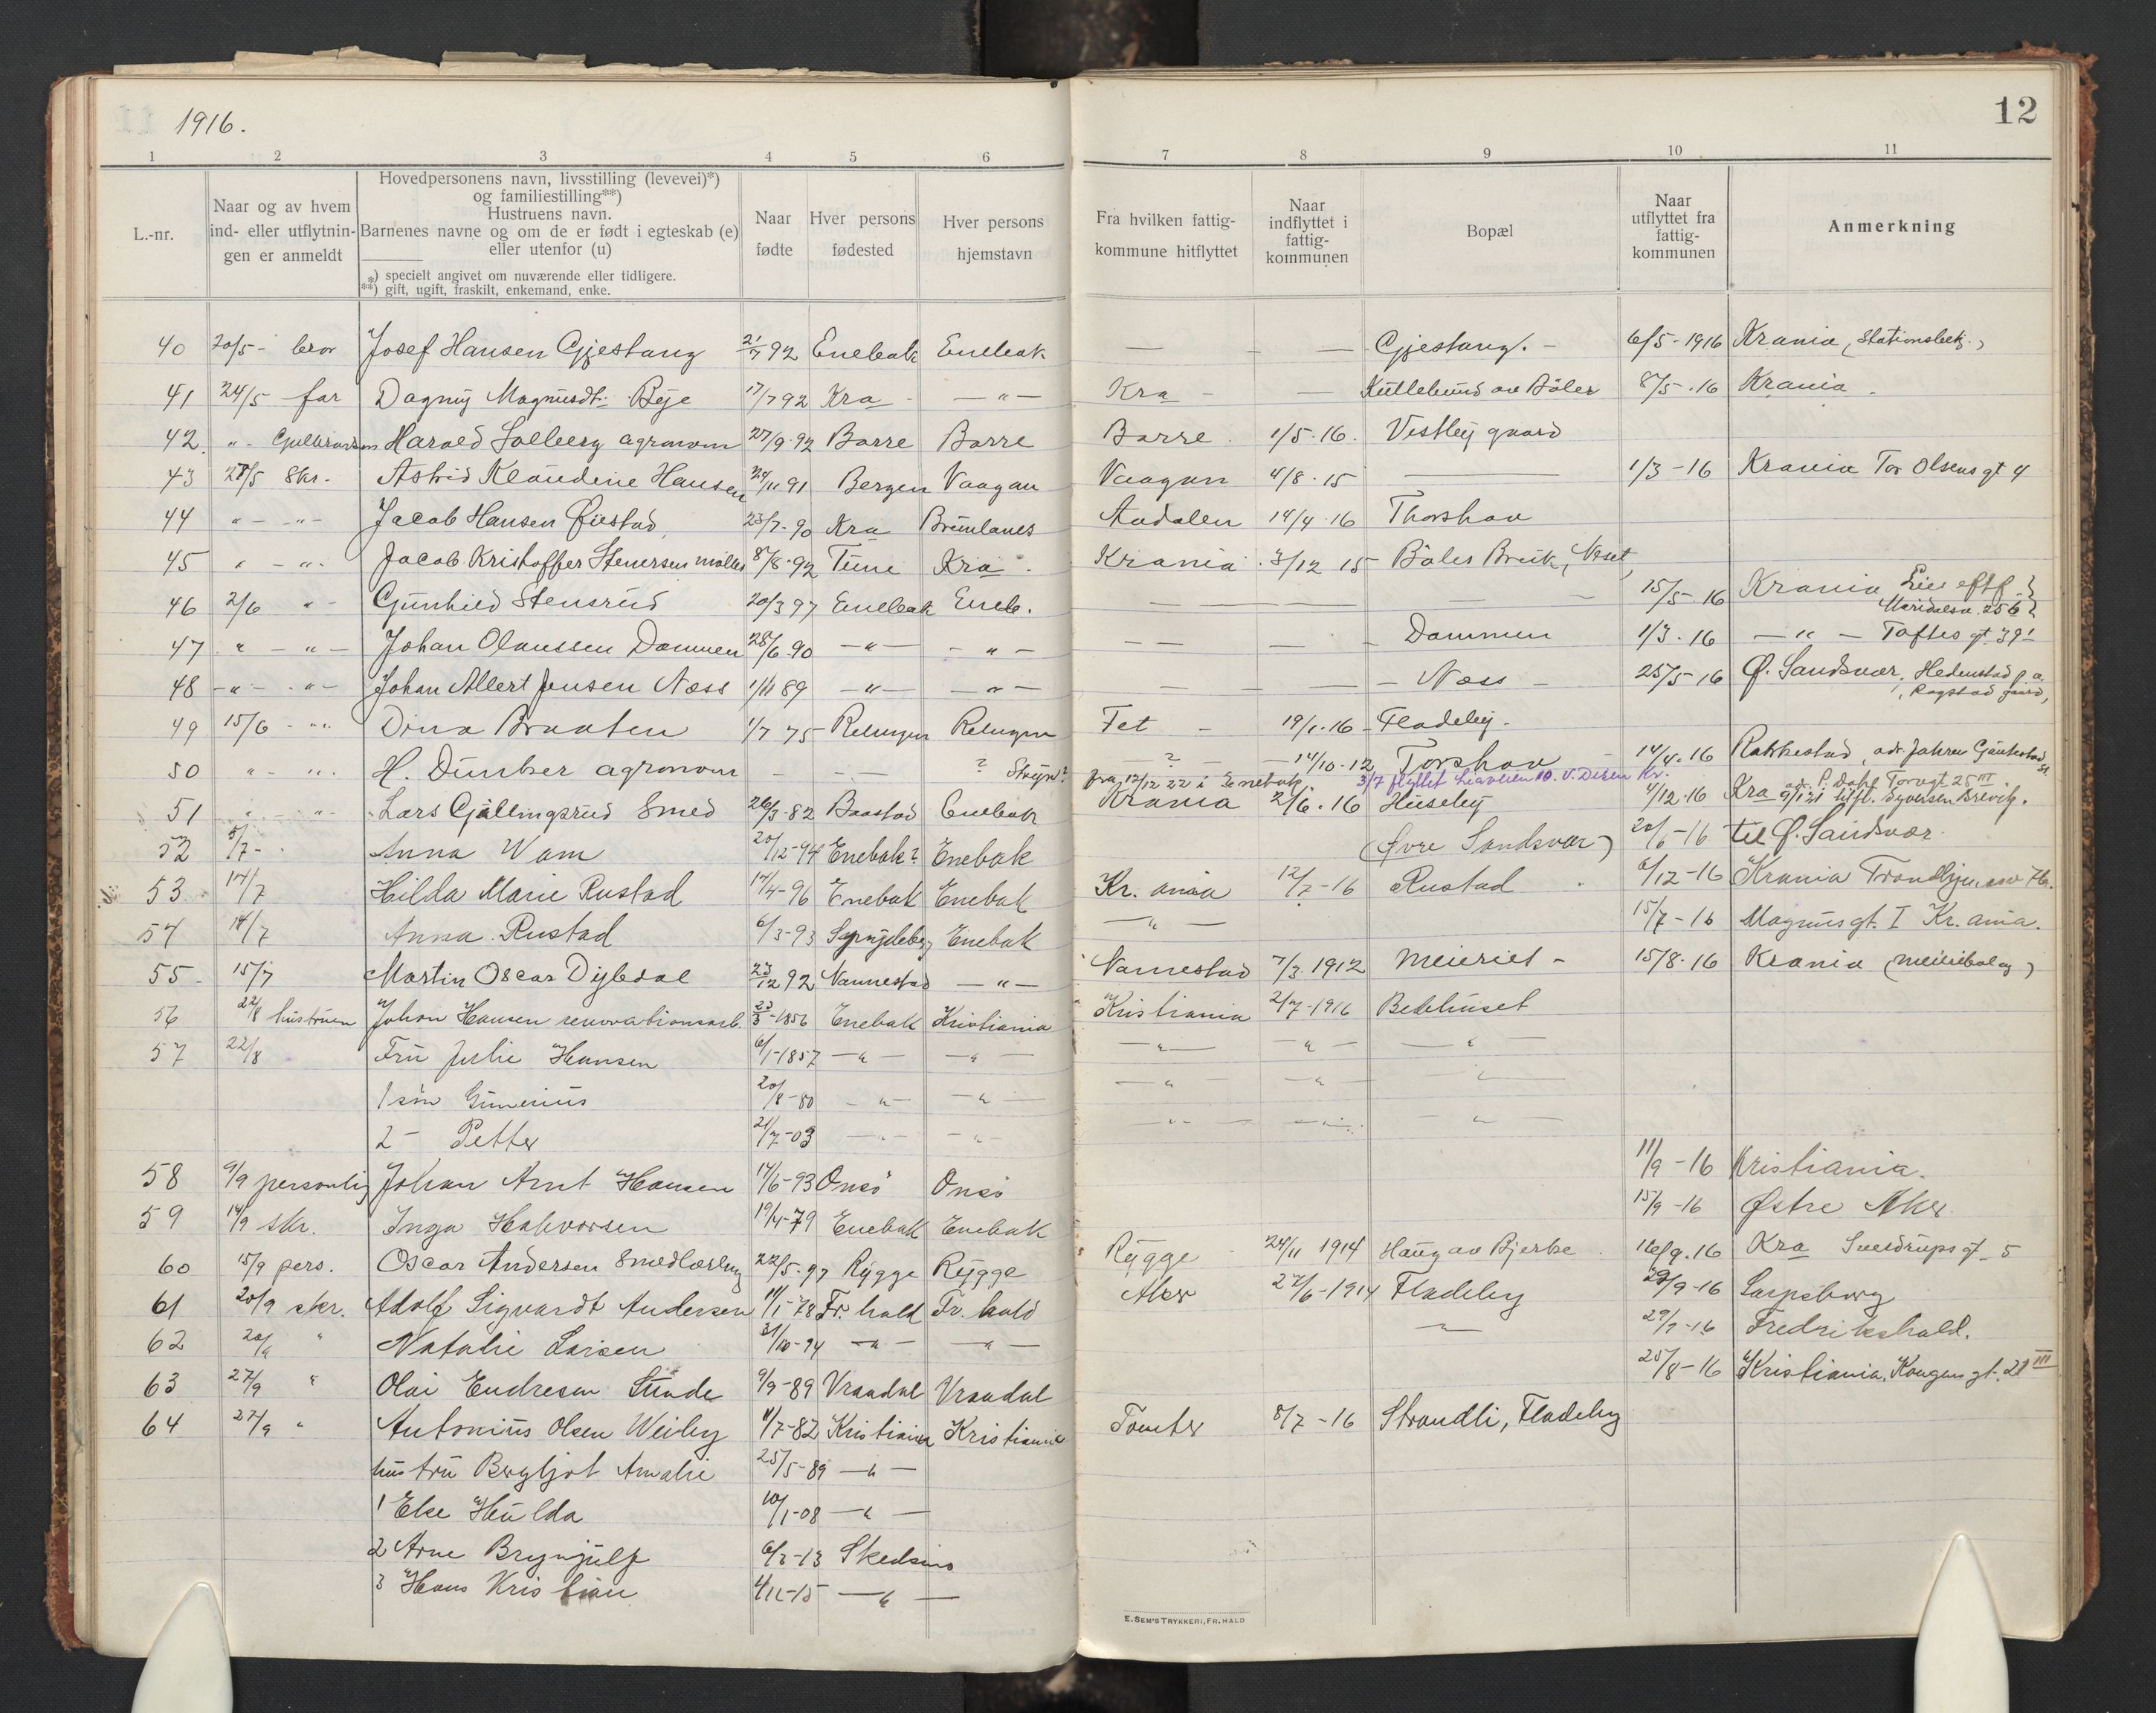 1916.
12
1 2 3 4 5 6 7 8 9 10 11
L.-nr.
Naar og av hvem ind- eller utflytnin-gen er anmeldt
Hovedpersonens navn, livsstilling (levevei)*)
og familiestilling**)
Hustruens navn.
Barnenes navne og om de er født i egteskab (e)
eller utenfor (u)
*) specielt angivet om nuværende eller tidligere.
**) gift, ugift, fraskilt, enkemand, enke.
Naar fødte
Hver persons fødested
Hver persons hjemstavn
Fra hvilken fattig-kommune hitflyttet
Naar indflyttet i fattig-kommunen
Bopæl
Naar utflyttet fra fattig-kommunen
Anmerkning
40 20/5 - bror Josef Hansen Gjestang 21/7 92 Enebak Enebak — — — Gjestang. - 6/5-1916 Krania (Stationsbetj.)
41 24/5 far Dagny Magnusdt. Bye 17/7 92 Kra - — " — Kra - — Kullebund av Böler 8/5.16 Krania.
42. " - Harald Solberg agronom 27/9.92 Borre Borre Borre. 1/5.16. Vestby gaard
43 27/5 Skr. Astrid Klaudine Hansen 24/11 91 Bergen Vaagan Vaagan 4/8.15 — 1/3-16 Krania Tor Olsens gt 4
44 " - " - Jacob Hansen Øiestad 23/7-90 Kra Brunlanes Aadalen 14/4.16 Thorshov
45 " - " - Jacob Kristoffer Stenersen møller 8/8.92 Tune Kra. Krania. 3/12 15 Böler Bruk, Væset
46 2/6 " - Gunhild Stensrud 20/3 97 Enebak Eneb. — — — 15/5-16 Krania Lies eftf. Maridalsv. 256
47 " - " - Johan Olaussen Dammen 28/6-90 — " — — " — — — — Dammen 1/3.16 — " — Toftes gt 39 I
48 - " - " - Johan Albert Jensen Næss 1/11 89 — " — — " — — — — Næss - 25/5-16 Ø. Sandsvær, Hedenstad p.a.
, Ragstad gaard,
49 15/6 - " - Dina Braaten 1/7 75 Relingen Relingen Fet - 19/1.16 - Fladeby -
50 " - " - H. Dunker agronom - — ? Stryn? ? - 14/10-12 Torshov - 14/4.16 Rakkestad, adr. Johren Gautestad St.
fra 12/12 22 i Enebak. 3/7 flyttet 10. V. Kr.
51 " - " - Lars Gjällingsrud Smed 26/3-82 Baastad Enebak Krania 2/6.16 Huseby 4/12.16 Kra adr. P. Dahl Torvgt 25 III
9/1 21 tilfl. Syversen Brevik.
52 5/7 - Anna Wam 20/12-94 Enebak? Enebak (Øvre Sandsvær) 20/6-16 til Ø. Sandsvær
53 14/7 Hilda Marie Rustad 14/4-96 Enebak Enebak Kr. ania 12/7-16 Rustad 6/12-16 Krania Trondhjemsv 76.
54 14/7 Anna Rustad 6/3-93 Spydeberg Enebak — " — 15/7-16 Magnusgt. I Kr. ania.
55 - 15/7 Martin Oscar Dybdal 23/12 92 Nannestad — " — Nannestad 7/3.1912 Meieriet - 15/8.16 Krania (meieribolag)
56 22/8 hustruen Johan Hansen renovationsarb. 23/3-1856 Enebak Kristiania Kristiania 2/7-1916 Bedehuset
57 22/8 Fru Julie Hansen 6/1-1857 — " — — " — — " — — " — — " —
1 sön Gunerius 20/8-80 - " — — " — — " — — " — — " —
2 - Petter 21/7-03 — " — — " — — " — — " — — " —
58 9/9 personlig Johan Arnt Hansen 14/6-93 Onsö Onsö 11/9-16 Kristiania.
59 14/9 skr. Inga Halvorsen 19/4-79 Enebak Enebak 15/9-16 Østre Aker
60 15/9 pers. Oscar Andersen Smedlærling 22/5-97 Rygge Rygge Rygge - 24/11 1914 Haug av Bjerke. 16/9.16 Kra Sverdrupsgt - 5
61 20/9 skr. Adolf Sigvardt Andersen 11/1-78 Fr. hald Fr. hald Aker 27/6-1914 Fladeby 29/9-16 Sarpsborg
62 20/9 " Natalie Larsen 31/10-94 — " — — " — — " — 29/9-16 Fredrikshald.
63 27/9 " Olai Endresen Sunde 9/9-89 Vraadal Vraadal 25/8-16 Kristiania. Kongens gt. 21 III
64 27/9 " Antonius Olsen Weiby 11/7-82 Kristiania Kristiania Tomter 8/7-16 Strandli, Fladeby
hustru Bergljot Amalie 25/5-89 — " —
1 Else Hulda 10/1-08 — " —
2 Arne Brynjulf 6/3-13 Skedsmo
3 Hans Kristian 4/11-15 — " —
E. SEM'S TRYKKERI, FR. HALD